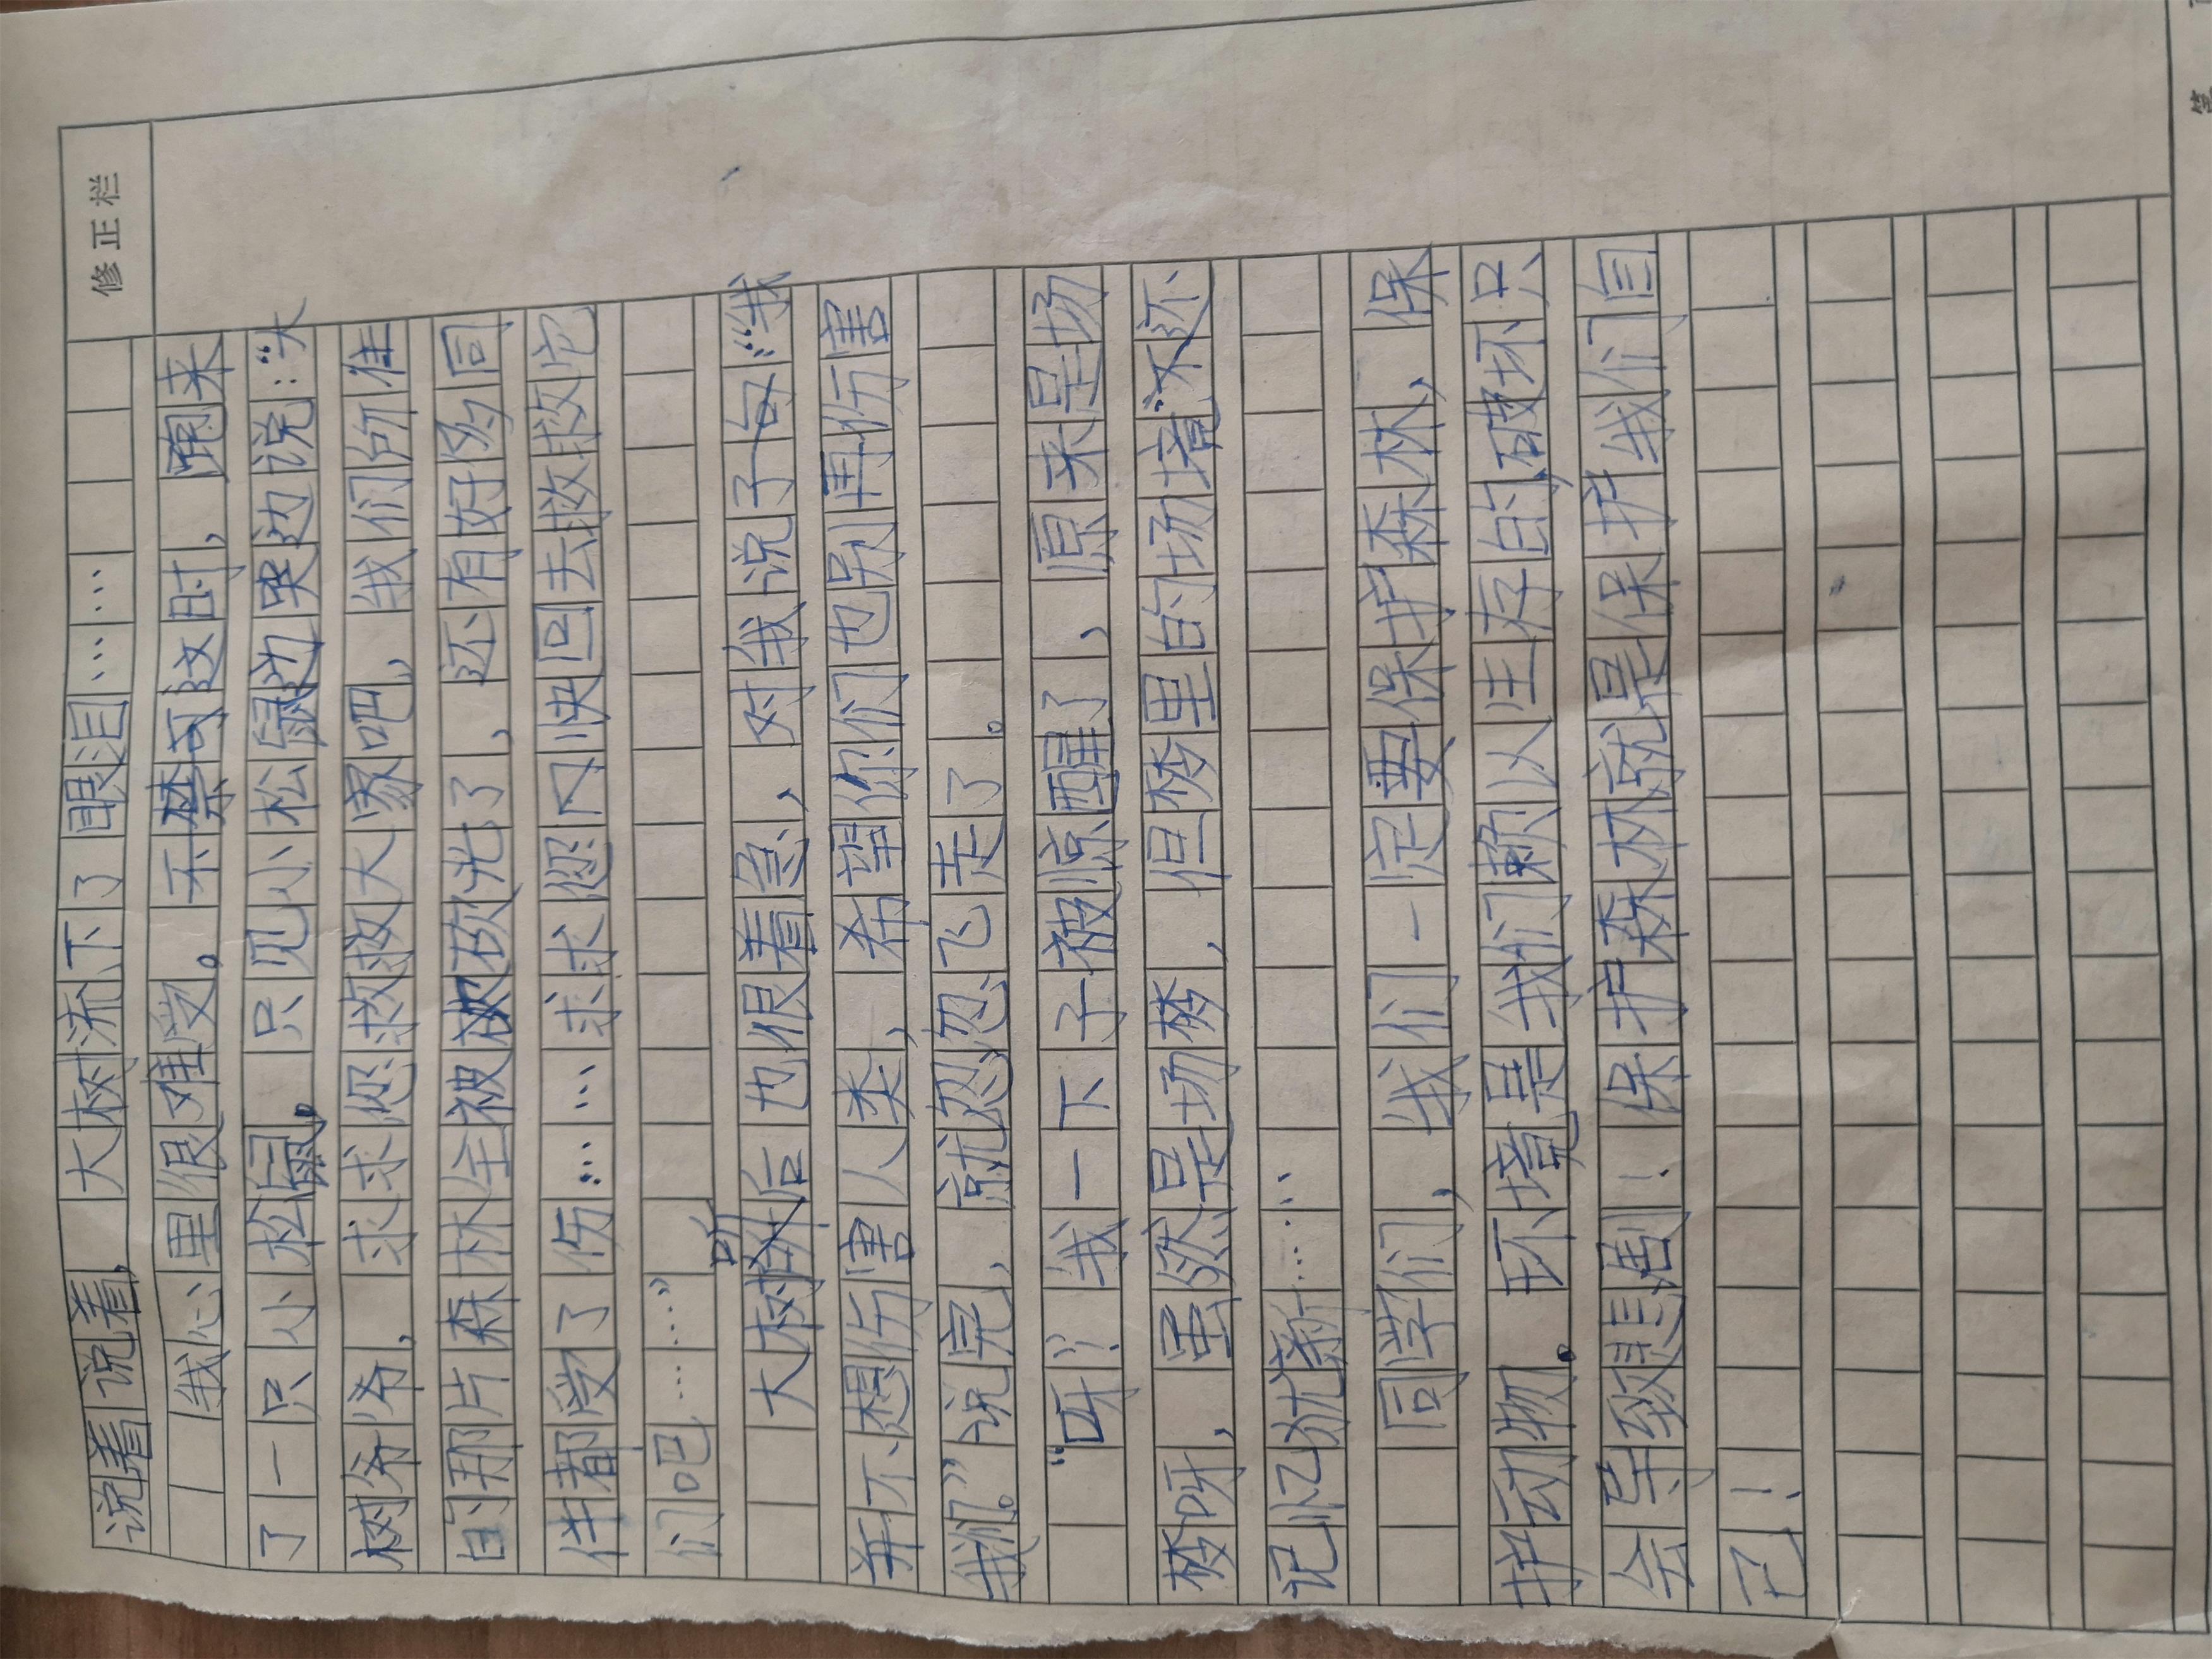 修正栏
说着说着，大树流下了眼泪……
我心里很难受。不禁可这时，跑来
了一只小松鼠。只见小松鼠边哭边说：“大
树爷爷，求求您救救大家吧，我们所住
的那片森林全被砍光了，还有好多同
伴都受了伤……求求您冈快回去救救它
们吧……”
大树听后也很着急，对我说了句“我
并不想伤害人类，希望你们也别再伤害
我们。”说完，就匆匆飞走了。
“呀！”我一下子被惊醒了，原来是场
梦呀，虽然是场梦，但梦里的场境还
记忆犹新……
同学们，我们一定要保护森林，保
护动物。环境是我们赖以生存的，破坏只
会导致悲剧！保护森林就是保护我们自
己！
第